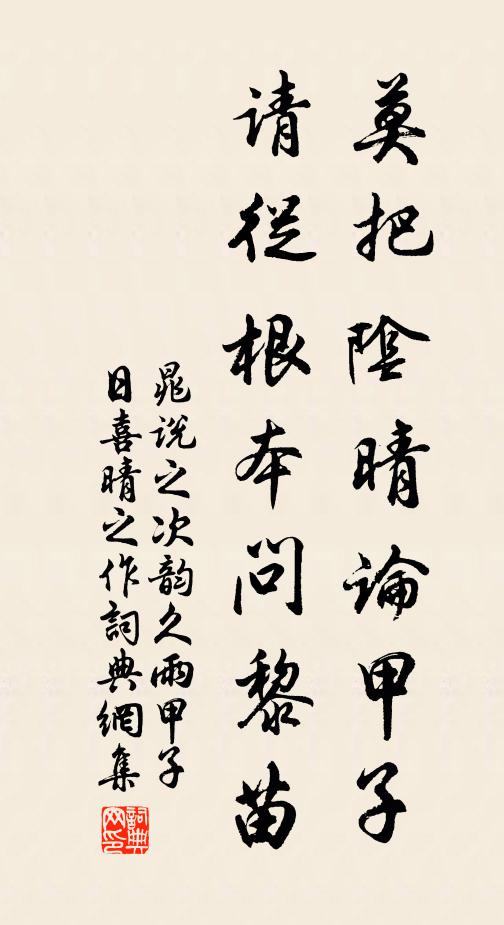 莫把陰晴論甲子
请從根本問黎苗
晁说之次韵久雨甲子
日喜晴之作詞典網集
詞典
网印